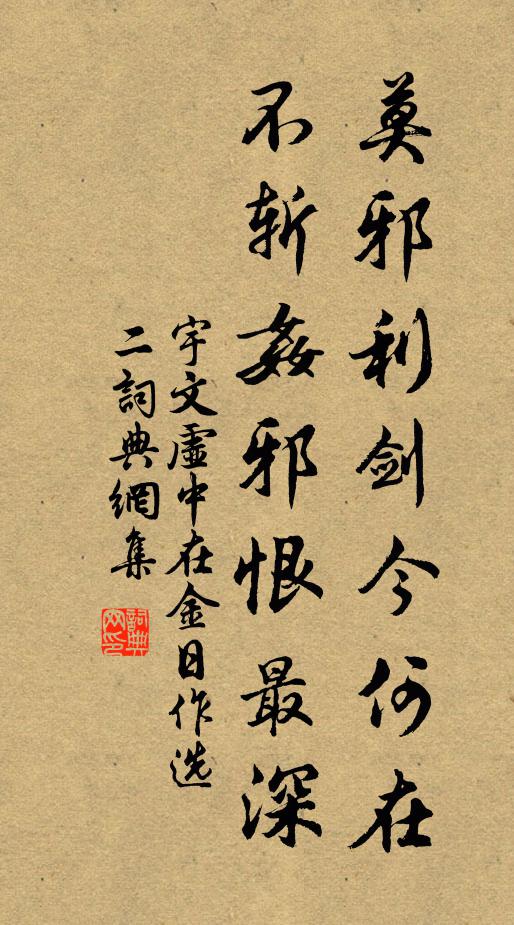 莫邪利劍今何在
不斬姦邪恨最深
宇文虛中在金日作选
二詞典網集
詞典
网印